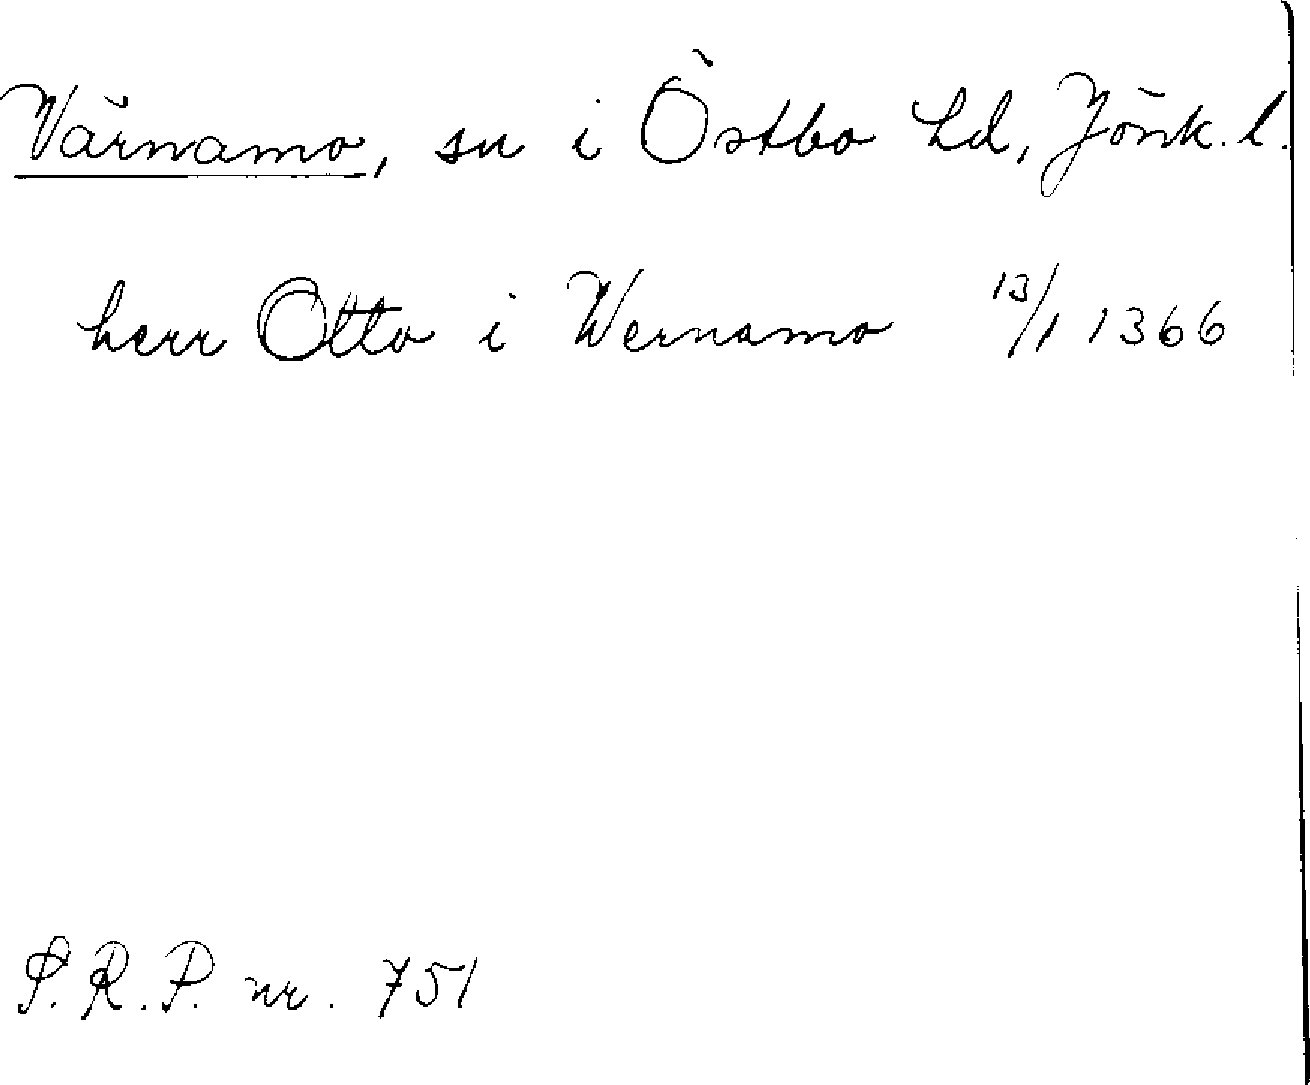 Värnamo, sn i Östbo hd, Jönk. l.
herr Otto i Wernamo 13/1 1366
S.R.P. nr. 751